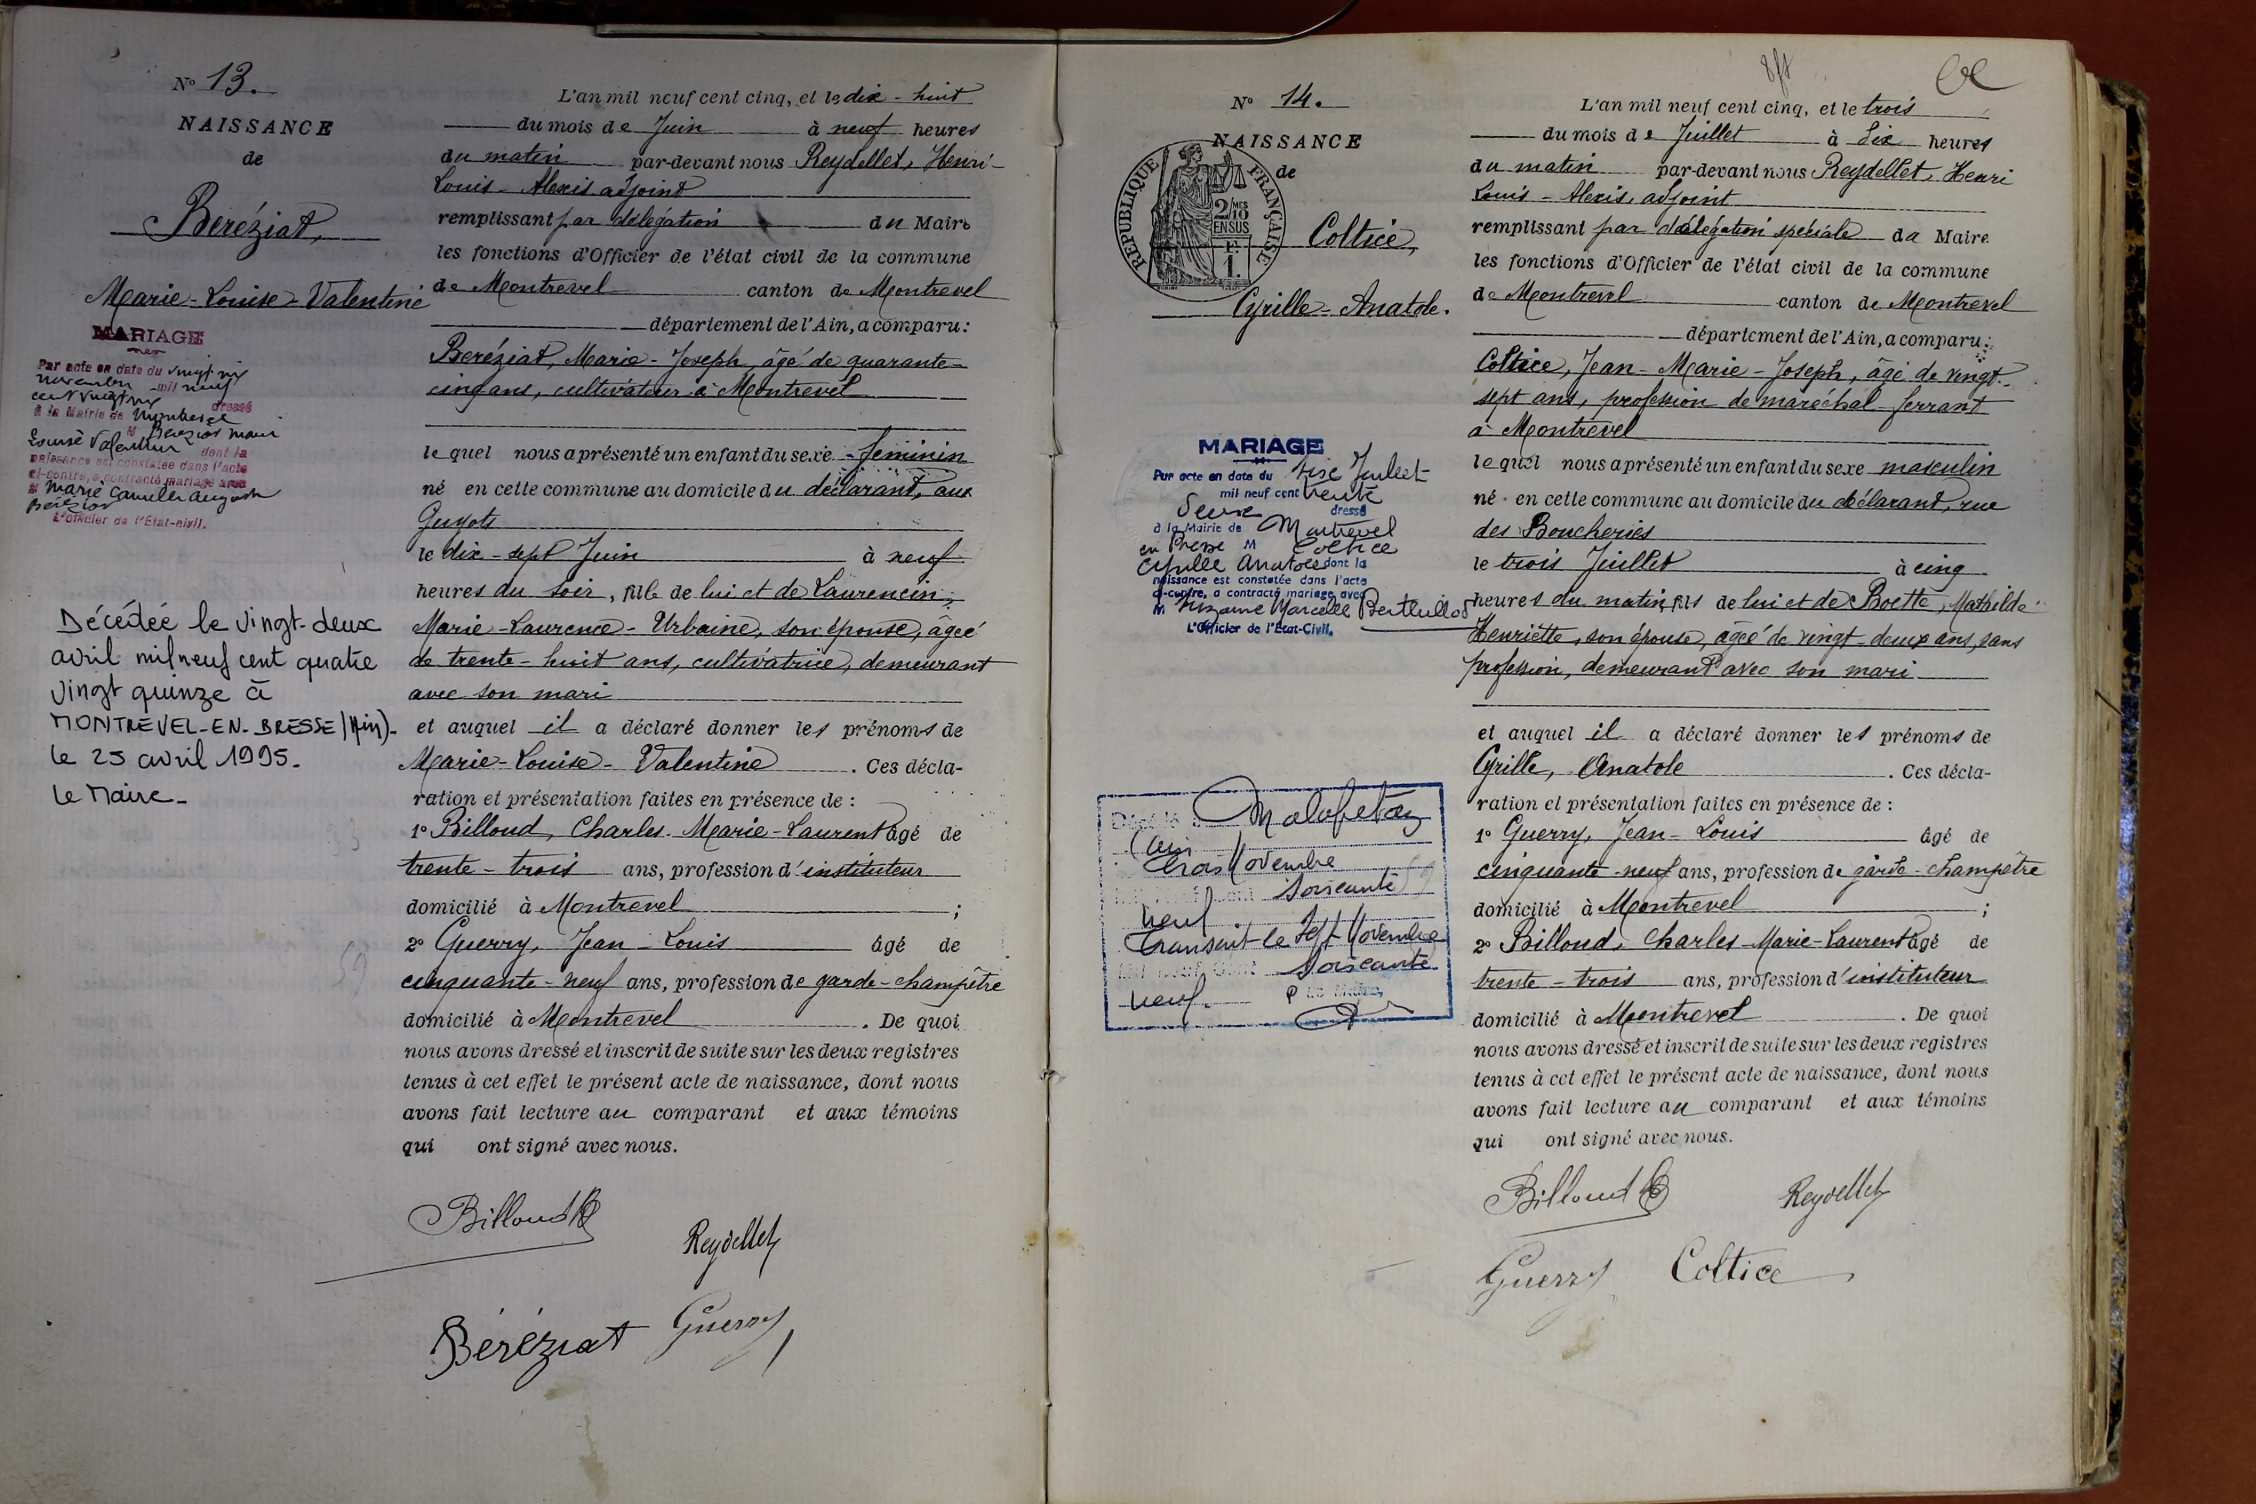 Nº 13.
NAISSANCE
de
Beréziat,
Marie-Louise-Valentine
MARIAGE
Par acte en date du vingt six
novembre mil neuf
cent vingt six dressé
à la Mairie de
M Beréziat Marie
Louise Valentine dont la
naissance est constatée dans l'acte
ci-contre, a contracté mariage avec
M Marie Camille Auguste
L'Officier de l'Etat-civil.
Décédée le vingt-deux
avril mil neuf cent quatre
vingt quinze à
MONTREVEL-EN-BRESSE (Ain)-
le 25 avril 1995.
Le Maire-
L'an mil neuf cent cinq, et le dix-huit
du mois de Juin à neuf heures
du matin par-devant nous Reydellet, Henri-
Louis-Alexis adjoint
remplissant par délégation du Maire
les fonctions d'Officier de l'état civil de la commune
de Montrevel canton de Montrevel
département de l'Ain, a comparu:
Beréziat, Marie-Joseph, âgé de quarante-
cinq ans, cultivateur à Montrevel
lequel nous a présenté un enfant du sexe féminin
né en cette commune au domicile du déclarant, aux
Guyots
le dix-sept Juin à neuf
heures du soir, fille de lui et de Laurencin,
Marie-Laurence-Urbaine, son épouse, âgée
de trente-huit ans, cultivatrice, demeurant
avec son mari
et auquel il a déclaré donner les prénoms de
Marie-Louise-Valentine. Ces décla-
ration et présentation faites en présence de :
1º Billoud, Charles-Marie-Laurent âgé de
trente-trois ans, profession d'instituteur
domicilié à Montrevel ;
2º Guerry, Jean-Louis âgé de
cinquante-neuf ans, profession de garde-champêtre
domicilié à Montrevel. De quoi
nous avons dressé et inscrit de suite sur les deux registres
tenus à cet effet le présent acte de naissance, dont nous
avons fait lecture au comparant et aux témoins
qui ont signé avec nous.
Billoud
Reydellet
Béréziat Guerry
Nº 14.
NAISSANCE
de
RÉPUBLIQUE FRANÇAISE
2/10 MES
EN SUS
1F.
Coltice,
Cyrille-Anatole.
MARIAGE
Par acte en date du Six Juillet
mil neuf cent trente
deux dressé
à la Mairie de Montrevel
en Bresse M Coltice
Cyrille Anatole dont la
naissance est constatée dans l'acte
ci-contre, a contracté mariage avec
M Suzanne Marcelle Berthillot
L'Officier de l'Etat-Civil,
Décédé à Malafretaz
(Ain)
trois Novembre
mil neuf cent soixante
neuf.
Transcrit le Sept Novembre
mil neuf cent soixante
neuf. P Le Maire,
L'an mil neuf cent cinq, et le trois
du mois de Juillet à dix heures
du matin par-devant nous Reydellet, Henri
Louis-Alexis, adjoint
remplissant par délégation spéciale du Maire
les fonctions d'Officier de l'état civil de la commune
de Montrevel canton de Montrevel
département de l'Ain, a comparu:
Coltice, Jean-Marie-Joseph, âgé de vingt-
sept ans, profession de maréchal-ferrant
à Montrevel
lequel nous a présenté un enfant du sexe masculin
né en cette commune au domicile du déclarant, rue
des Boucheries
le trois Juillet à cinq
heures du matin, fils de lui et de Boette, Mathilde
Henriette, son épouse, âgée de vingt-deux ans, sans
profession, demeurant avec son mari
et auquel il a déclaré donner les prénoms de
Cyrille, Anatole. Ces décla-
ration et présentation faites en présence de :
1º Guerry, Jean-Louis âgé de
cinquante-neuf ans, profession de garde-champêtre
domicilié à Montrevel ;
2º Billoud, Charles-Marie-Laurent âgé de
trente-trois ans, profession d'instituteur
domicilié à Montrevel. De quoi
nous avons dressé et inscrit de suite sur les deux registres
tenus à cet effet le présent acte de naissance, dont nous
avons fait lecture au comparant et aux témoins
qui ont signé avec nous.
Billoud
Reydellet
Guerry Coltice